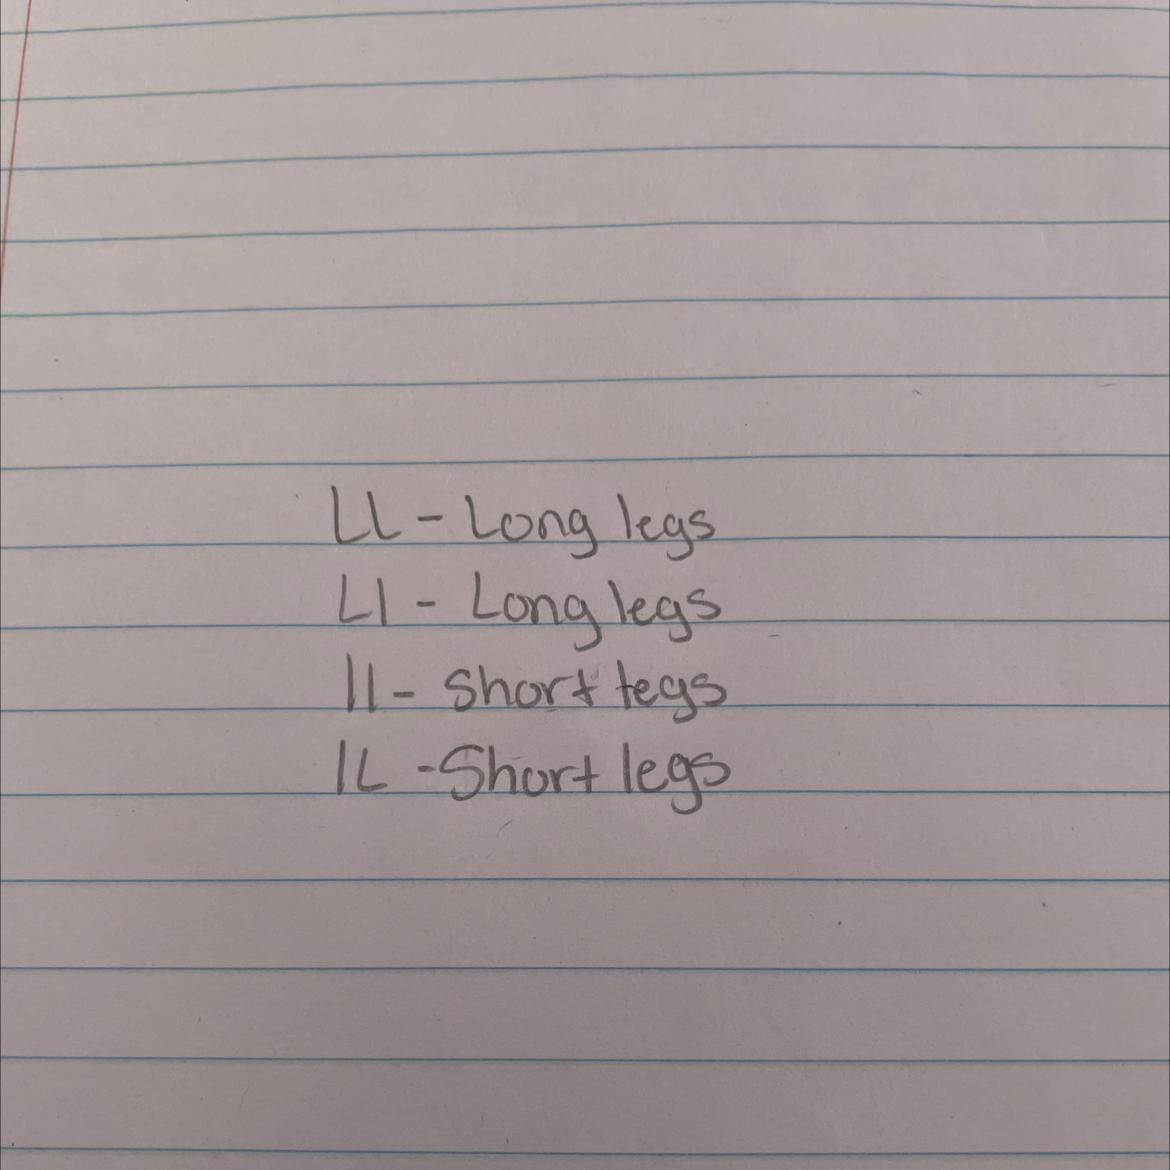 LL - Long legs
Ll - Long legs
ll - Short legs
lL - Short legs